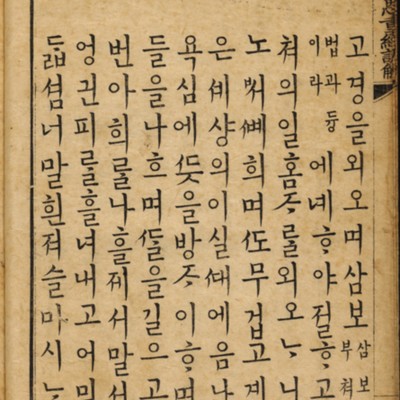 恩重經諺解
고경을외오며삼보
삼보
부쳐
법과듕
이라
에녜ᄒᆞ야절ᄒᆞ고
쳐의일홈ᄌᆞᄅᆞᆯ외오ᄂᆞ니
노 ᄲᅧ희며ᄯᅩ무겁고계
은셰샹의이실ᄯᅢ에음나
욕심에ᄠᅳᆺ을방ᄌᆞ이ᄒᆞ며
들을나흐며ᄯᆞᆯ을길으고
번아희ᄅᆞᆯ나흘제서말서
엉긘피ᄅᆞᆯ흘녀내고어미
듧셤너말흰져슬마시ᄂᆞ